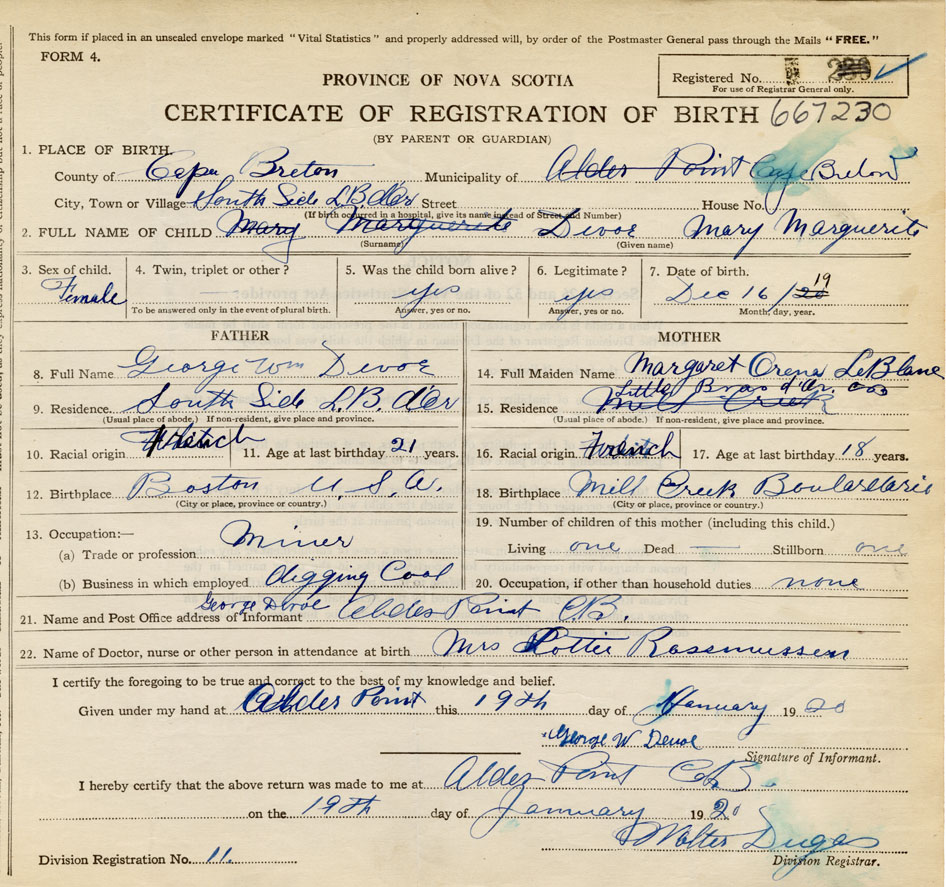 This form if placed in an unsealed envelope marked "Vital Statistics" and properly addressed will, by order of the Postmaster General pass through the Mails "FREE."
FORM 4.
Registered No.
For use of Registrar General only.
PROVINCE OF NOVA SCOTIA
CERTIFICATE OF REGISTRATION OF BIRTH 667230
(BY PARENT OR GUARDIAN)
1. PLACE OF BIRTH.
County of Cape Breton Municipality of Alder Point Cape Breton
City, Town or Village South Side L.B. d'or Street House No.
(If birth occurred in a hospital, give its name instead of Street and Number)
2. FULL NAME OF CHILD Mary Marguerite Devoe Mary Marguerite
(Surname) (Given name)
3. Sex of child. 4. Twin, triplet or other? 5. Was the child born alive? 6. Legitimate? 7. Date of birth.
Female — yes yes Dec 16/20 19
To be answered only in the event of plural birth. Answer, yes or no. Answer, yes or no. Month, day, year.
FATHER MOTHER
8. Full Name George Wm Devoe 14. Full Maiden Name Margaret Orena LeBlanc
9. Residence South Side L.B. d'or 15. Residence Mill Creek Little Bras d'Or
(Usual place of abode.) If non-resident, give place and province. (Usual place of abode.) If non-resident, give place and province.
10. Racial origin French 11. Age at last birthday 21 years. 16. Racial origin French 17. Age at last birthday 18 years.
12. Birthplace Boston U.S.A. 18. Birthplace Mill Creek Boulardarie
(City or place, province or country.) (City or place, province or country.)
13. Occupation:— 19. Number of children of this mother (including this child.)
(a) Trade or profession Miner Living one Dead — Stillborn one
(b) Business in which employed digging Coal 20. Occupation, if other than household duties. none
21. Name and Post Office address of Informant George Devoe Alder Point C.B.
22. Name of Doctor, nurse or other person in attendance at birth Mrs Lottie Rassmussen
I certify the foregoing to be true and correct to the best of my knowledge and belief.
Given under my hand at Alder Point this 19th day of January 1920
George W Devoe
Signature of Informant.
I hereby certify that the above return was made to me at Alder Point C.B.
on the 19th day of January 1920
Walter Dugas
Division Registrar.
Division Registration No. 11.